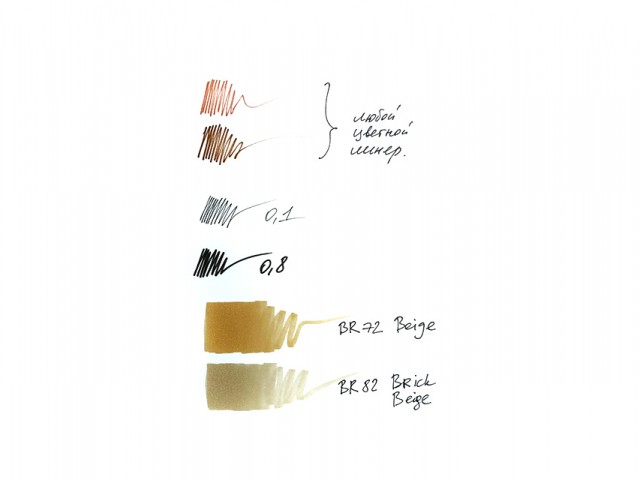 любой
цветной
линер.
0,1
0,8
BR72 Beige
BR82 Brick
Beige